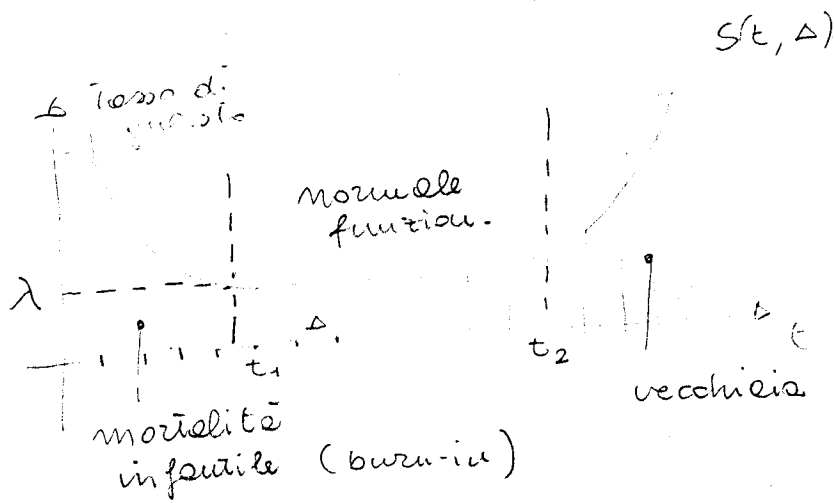 S(t, Δ)
tasso di
normale
funzion.
λ
Δ
t₁
t₂
t
vecchiaia
mortalità
infantile (burn-in)